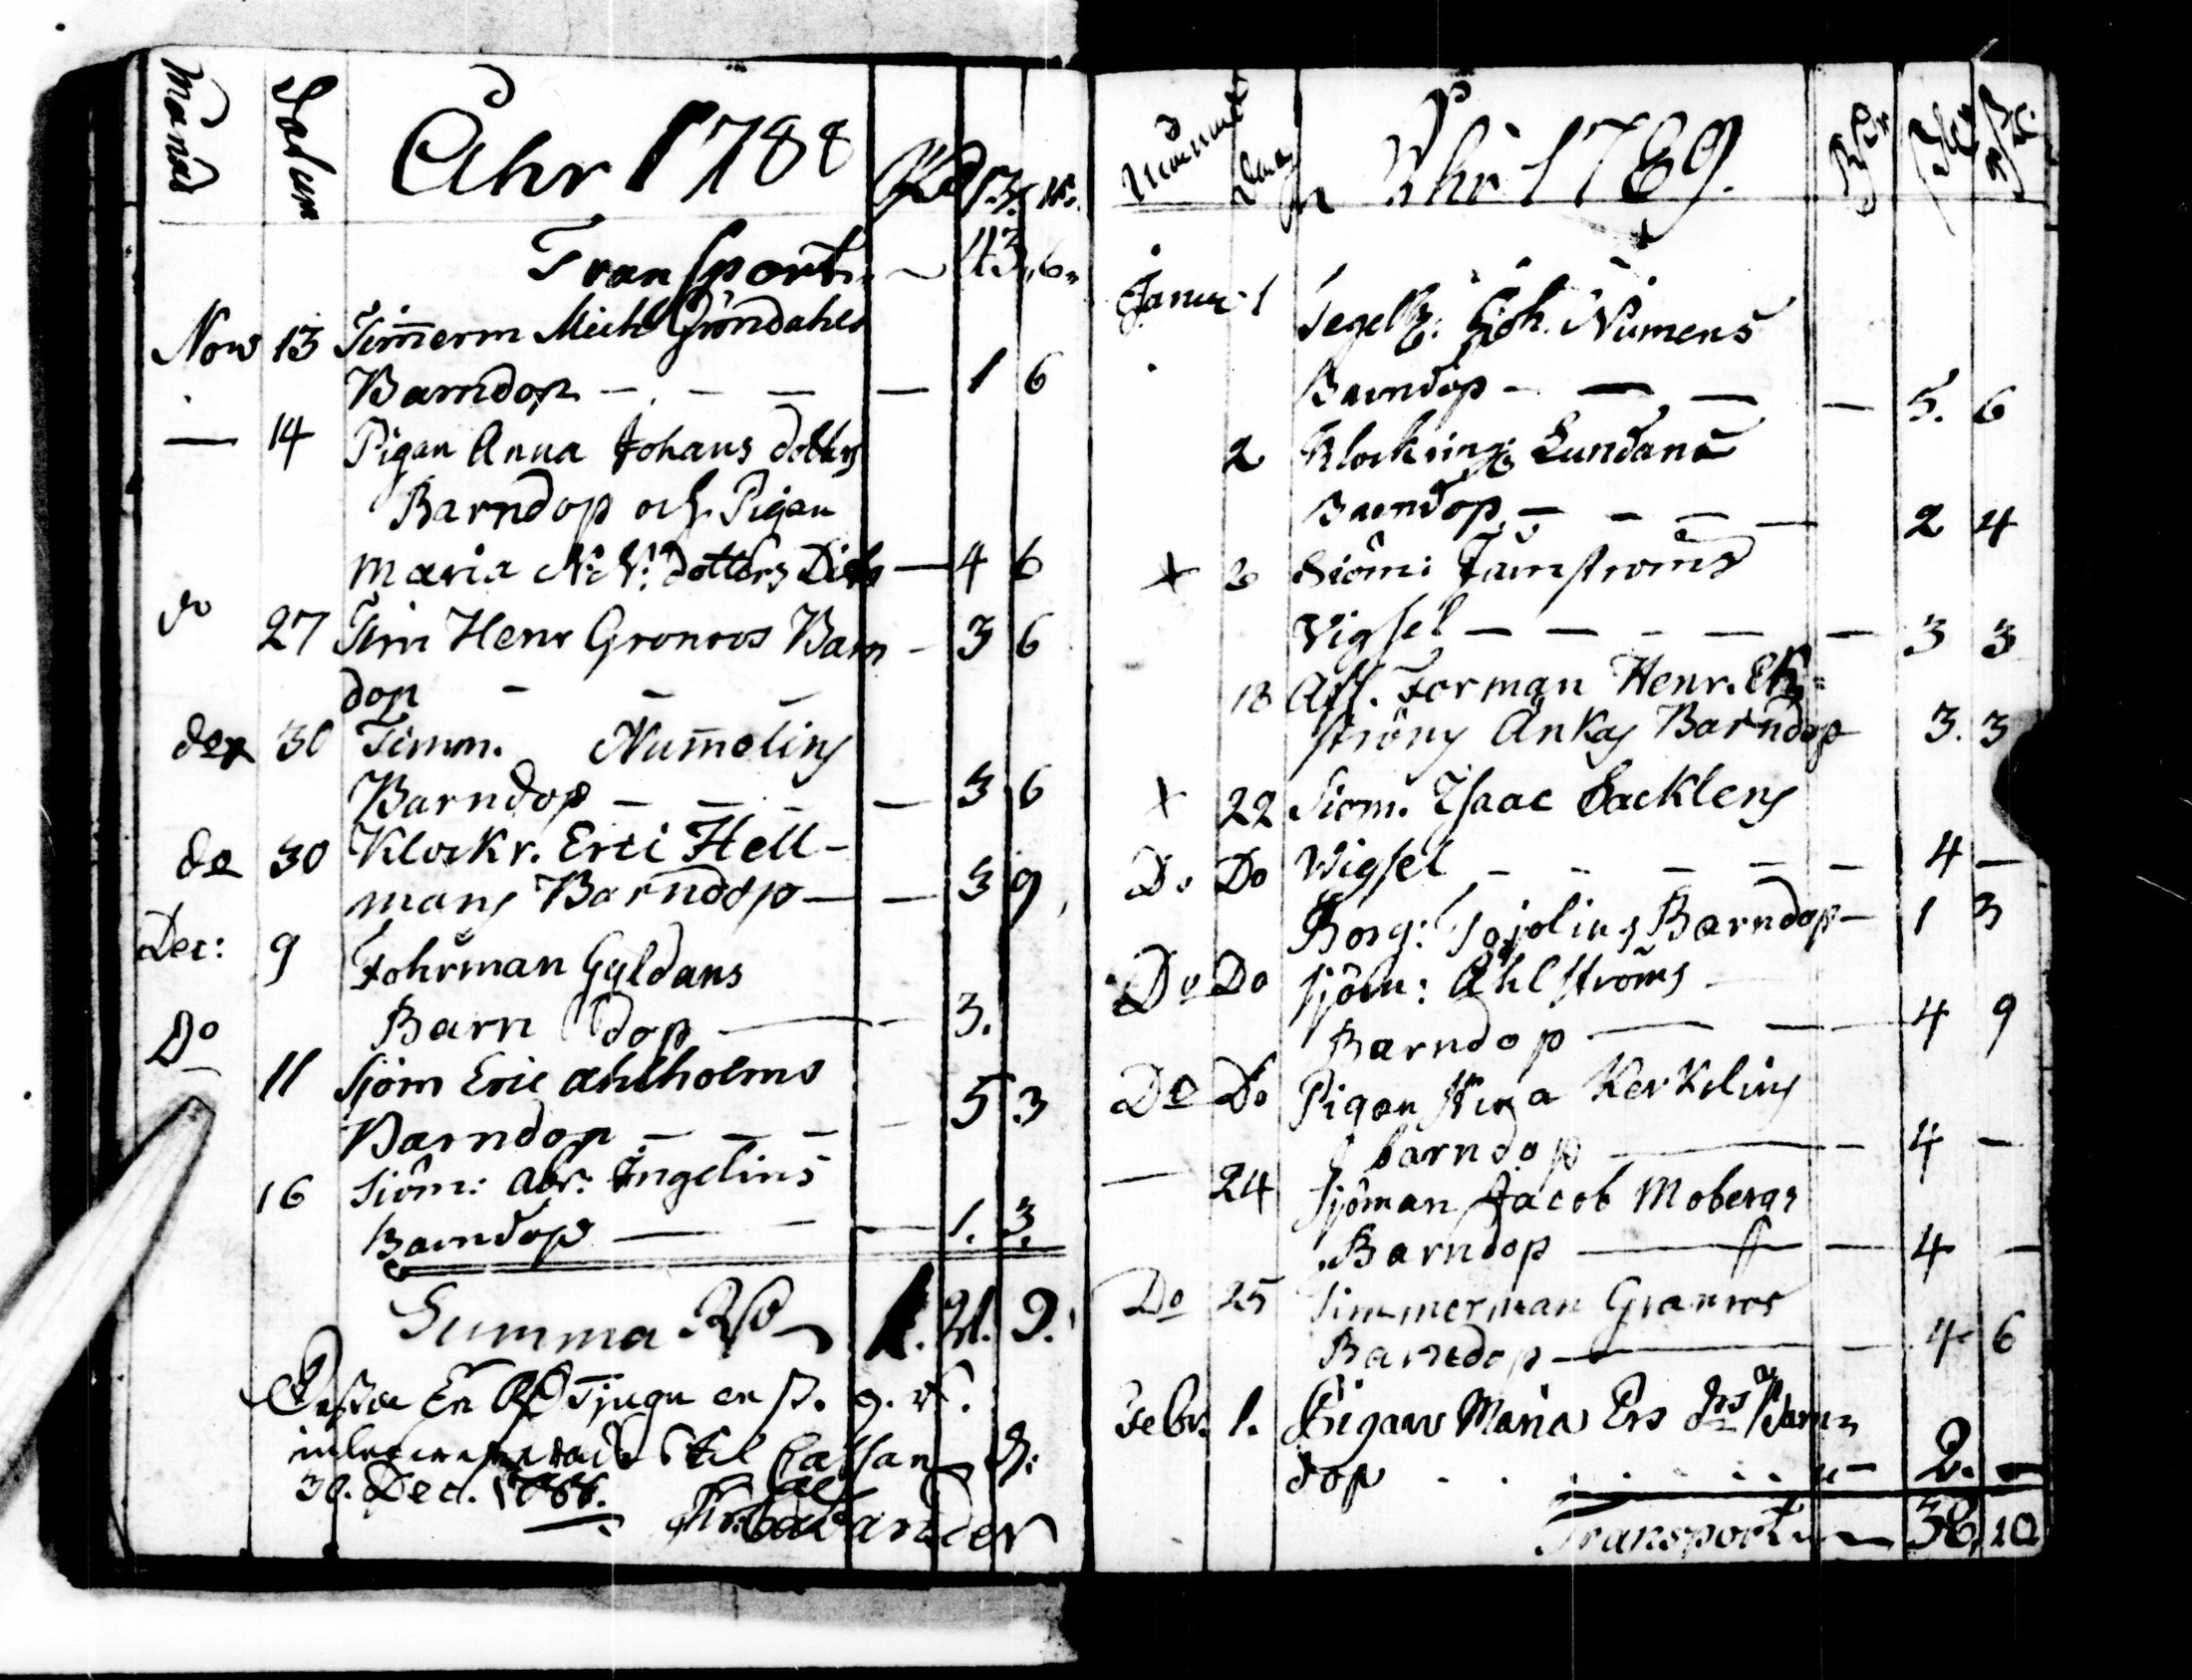 Månad Datum Åhr 1788 Rd ß. rs.
Transport. 43. 6.
Nov 13 Timerm Mich Gröndahls
Barndop — — — — 1 6
— 14 Pigan Anna Johans dotters
Barndop och Pigan
Maria dotters Dito — 4 6
do 27 Tim Henr Gronroos Barn - 3 6
dop - -
30 Timm. Numelins
Barndop — — — — 3 6
do 30 Klockr. Erici Hell-
mans Barndop — — 3 9
Dec: 9 Fohrman Gyldans
Barn dop — 3.
Do 11 Sjöm Eric ahlholms
Barndop — — — - 5 3
16 Siöm: Abr: Ingelins
Barndop — — — 1. 3.
Summa Rd 1. 21. 9.
En Rd Tjugu en ß. 9. rs.
til Cassan d:
30. Dec. 1788.
Månad Dag Åhr 1789.
Janu: 1 Joh. Numens
Barndop - — — — 5. 6
2 Lundans
Barndop — - — — 2 4
+ Siöm: Jarnstroms
Vigsel — — - — — 3 3
18 Aff. Forman Henr. Ek=
ströms Änkas Barndop 3. 3
+ 22 Siom. Isaac Sacklens
Do Do Wigsel - - - — — 4 —
Borg: Barndop — 1 3
Do Do Sjöm: Ahlstroms
Barndop — — 4 9
Do Do Pigan Stina Kerkelins
barndop — - 4 —
— 24 Sjöman Jacob Mobergs
Barndop — — 4 —
Do 25 Timmerman Granroos
Barndop — - 4 6
Febr. 1. Pigans Maria Ers drs Barn=
dop . . . . . . — 2. —
Transport 38, 10